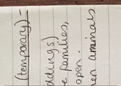 (temporary) -
ddings)
e families,
open.
hen animals